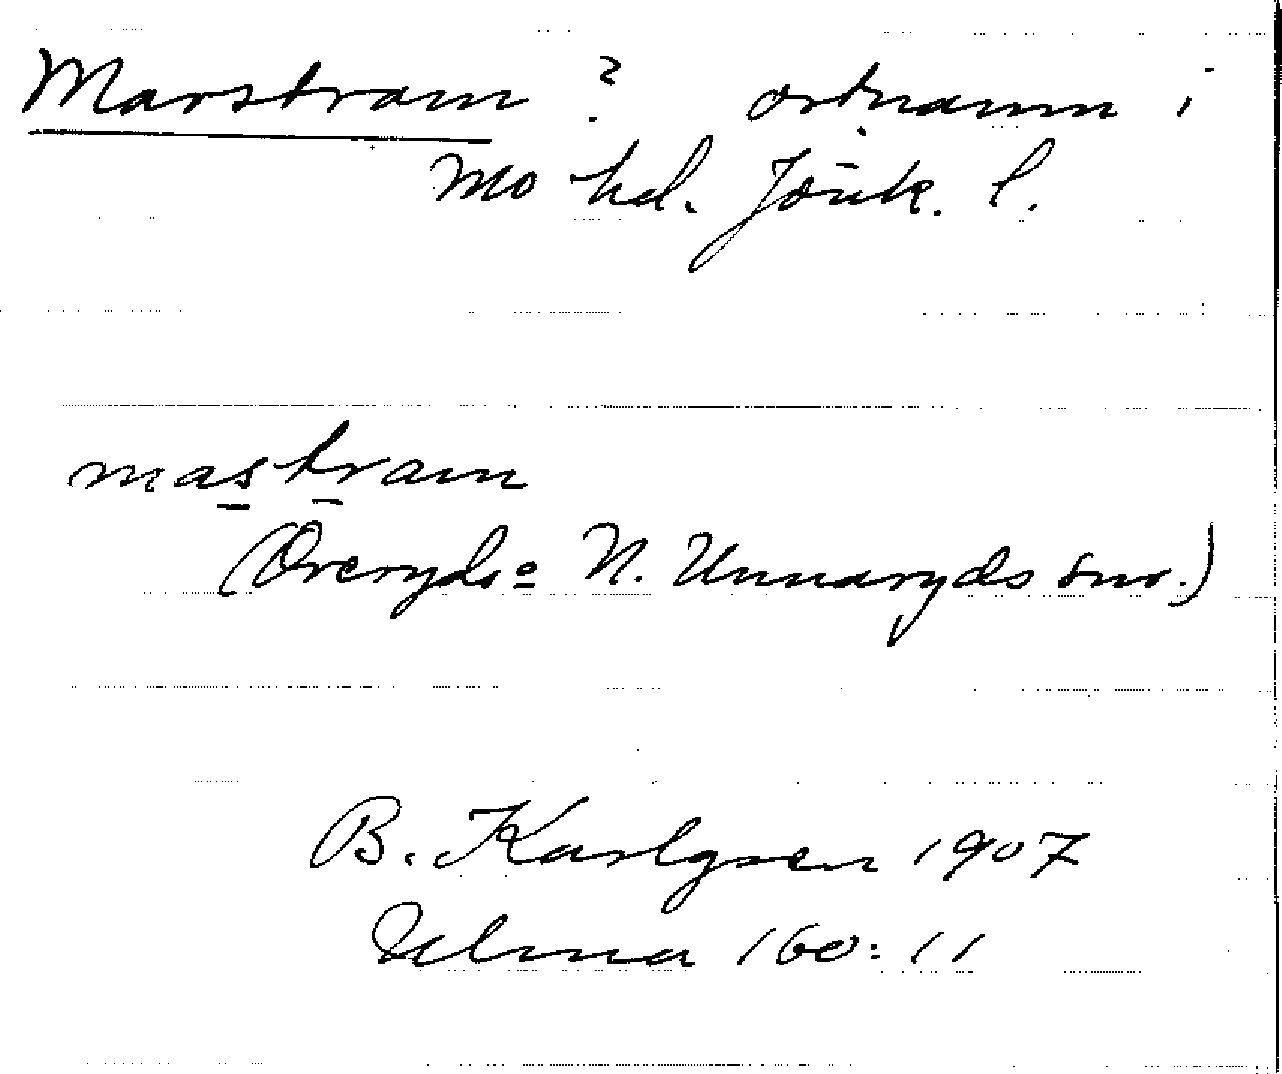 Marstram ? ortnamn i
Mo hd. Jönk. l.
mastram
(Överyd. N. Unnaryds snr.)
B. Karlgren 1907
Ulma 160:11